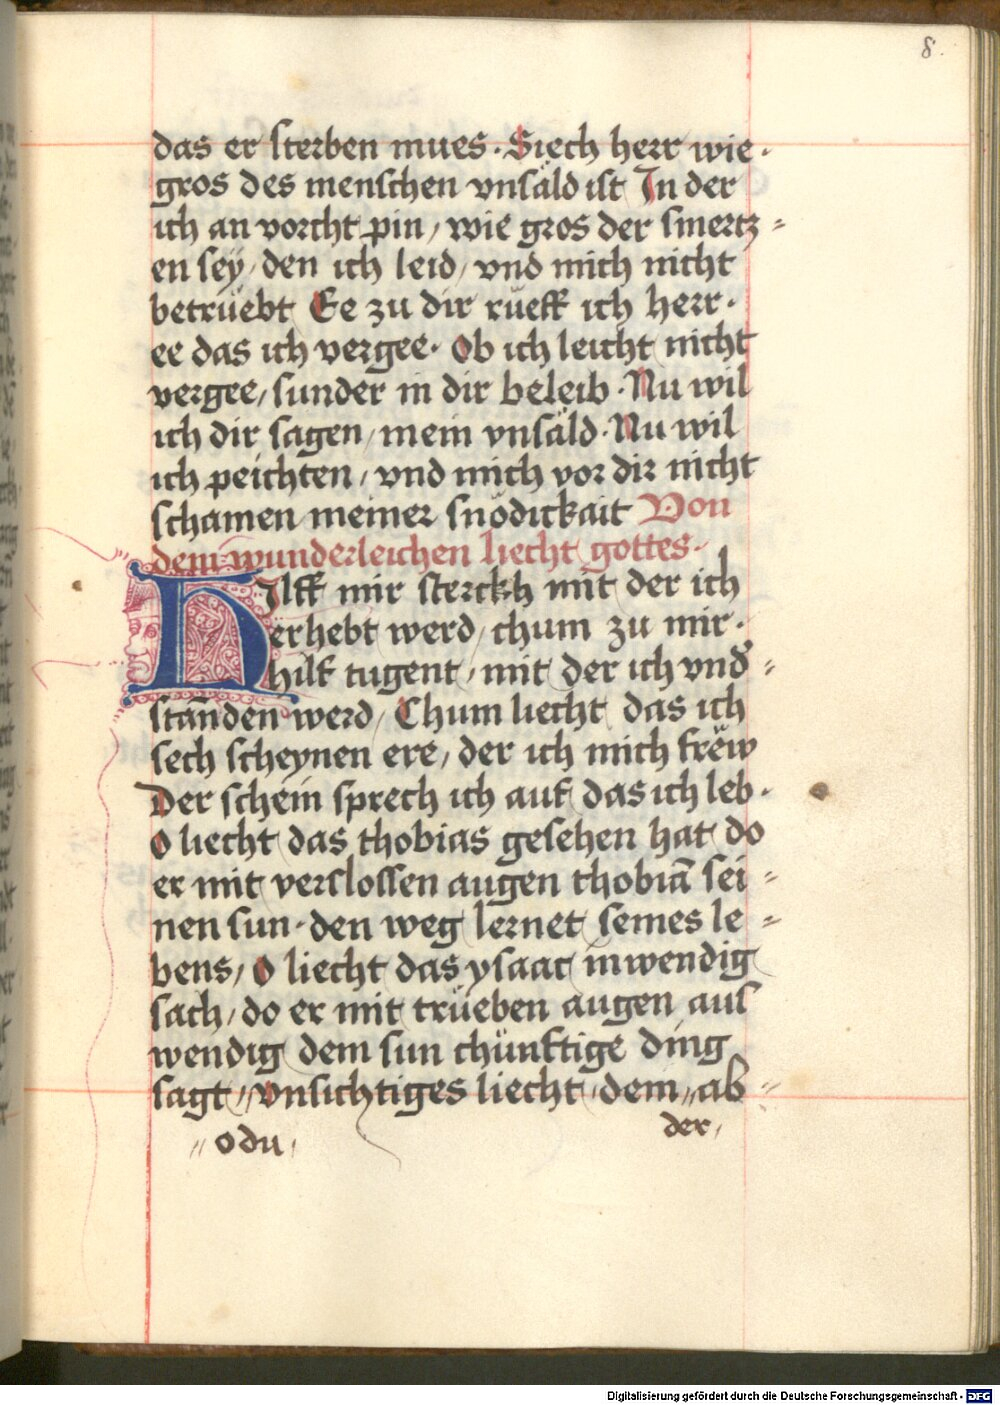 8.
das er sterben mues · Siech herr wie ·
gros des menschen vnsäld ist In der
ich an vorcht pin / wie gros der smertz =
en seÿ / den ich leid / vnd mich nicht
betrüebt Ee zu dir rüeff ich herr ·
ee das ich vergee · Ob ich leicht nicht
vergee / sunder in dir beleib · Nu wil
ich dir sagen / mein vnsäld · Nu wil
ich peichten / vnd mich vor dir nicht
schamen meiner snödickait Von
dem wunderleichen liecht gottes ·
HIlff mir sterckh mit der ich
erhebt werd / chum zu mir ·
hilf tugent / mit der ich vnd̄ =
stan̄den werd / Chum liecht das ich
sech scheynen ere / der ich mich frëw
Der schein sprech ich auf das ich leb ·
O liecht das thobias gesehen hat do
er mit verslossen augen thobiā sei =
nen sun · den weg lernet seines le =
bens / O liecht das ysaac inwendig
sach / do er mit trüeben augen aus
wendig dem sun chünftige ding
sagt // vnsichtiges liecht / dem // ab =
der /
// o du /
Digitalisierung gefördert durch die Deutsche Forschungsgemeinschaft - DFG